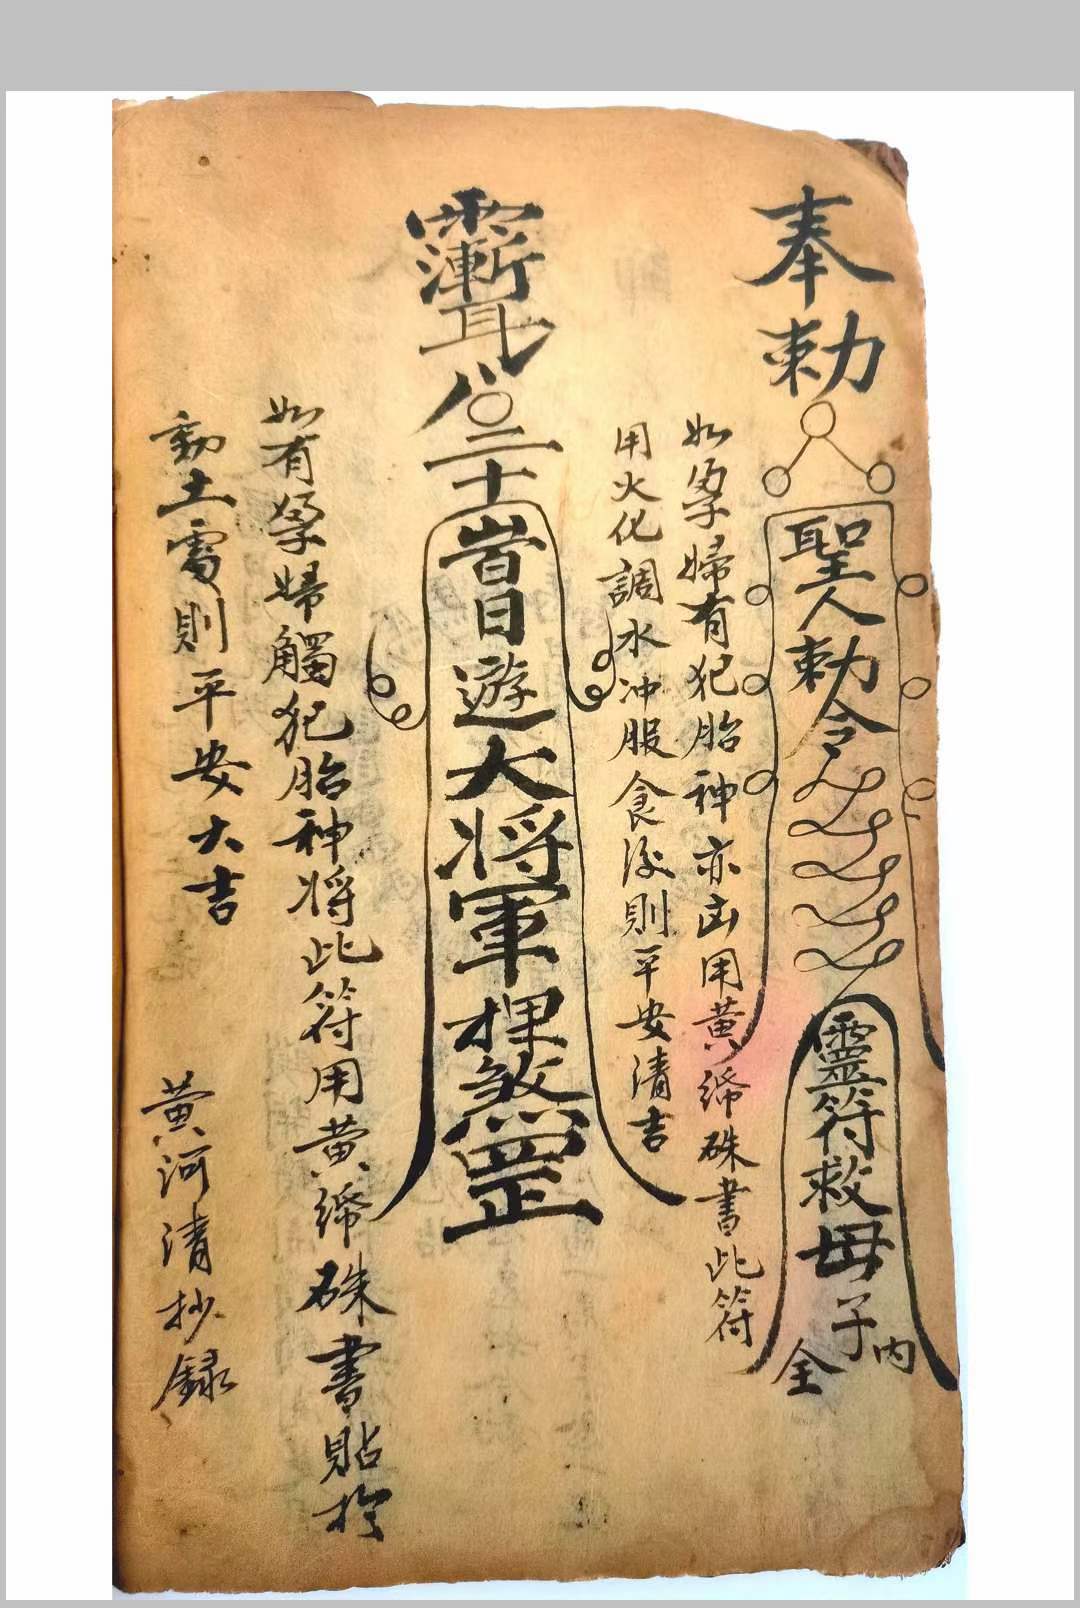 奉勅
聖人勅令
靈符救母子
全
内
如孕婦有犯胎神亦凶用黄𥿄硃書此符
用火化調水冲服食后則平安清吉
八
二十
日遊大将軍
煞罡
如有孕婦觸犯胎神将此符用黄𥿄硃書貼於
動土處則平安大吉
黄河清抄録